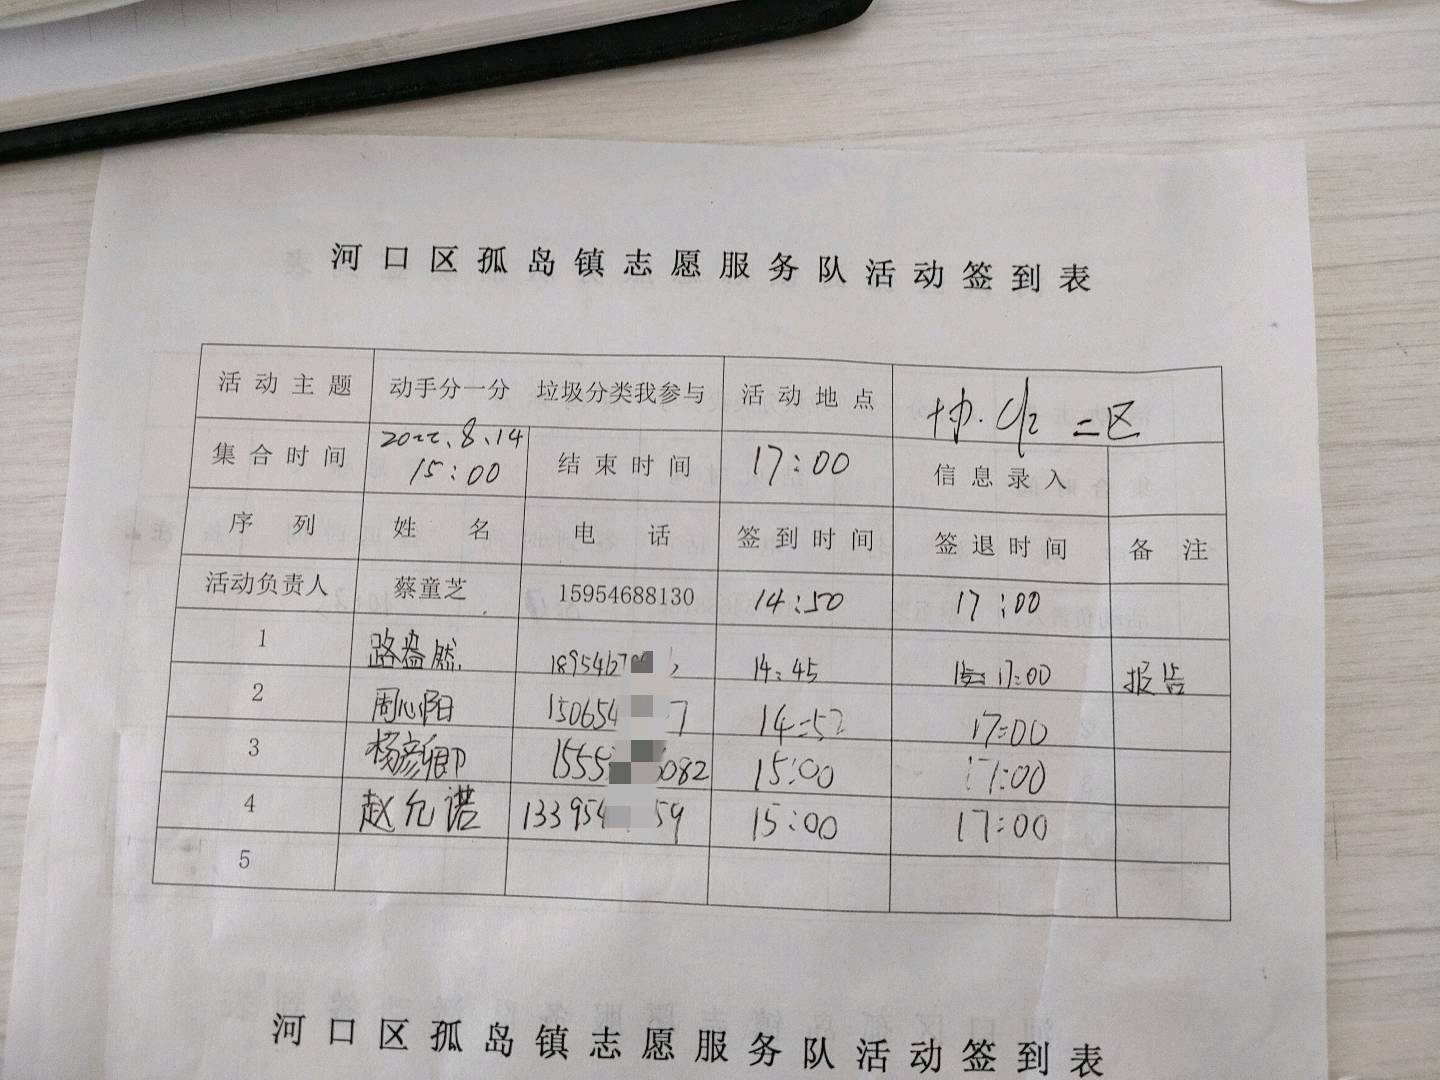 河口区孤岛镇志愿服务队活动签到表
活动主题 动手分一分 垃圾分类我参与 活动地点 二区
集合时间 2022.8.14 15:00 结束时间 17:00 信息录入
序列 姓名 电话 签到时间 签退时间 备注
活动负责人 蔡童芝 15954688130 14:50 17:00
1 路盎然 1895467 14:45 17:00 报告
2 周心阳 150654 7 14:52 17:00
3 杨彦卿 1555 082 15:00 17:00
4 赵允诺 133954 59 15:00 17:00
5
河口区孤岛镇志愿服务队活动签到表